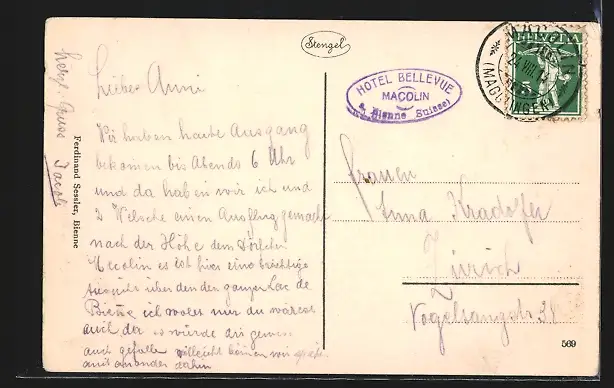 Stengel
HELVETIA
(MAGGLINGEN)
HOTEL BELLEVUE
MACOLIN
s. Bienne (Suisse)
Liebes Anni
Wir haben heute Ausgang
bekomen bis Abends 6 Uhr
und da haben wir ich und
2 Welsche einen Ausflug gemacht
nach der Höhe dem Dörfchen
Macolin es ist hier eine prächtige
über den den ganzen Lac de
Bienne ich wolte nur du wärest
auch da es würde dir gewiss
auch gefallen villeicht könen wir
mit einander dahin
herzl. Gruss Jacob
Ferdinand Sessler, Bienne
Frauen
Anna Kradofer
Zürich
Vogelsangstr 38
569